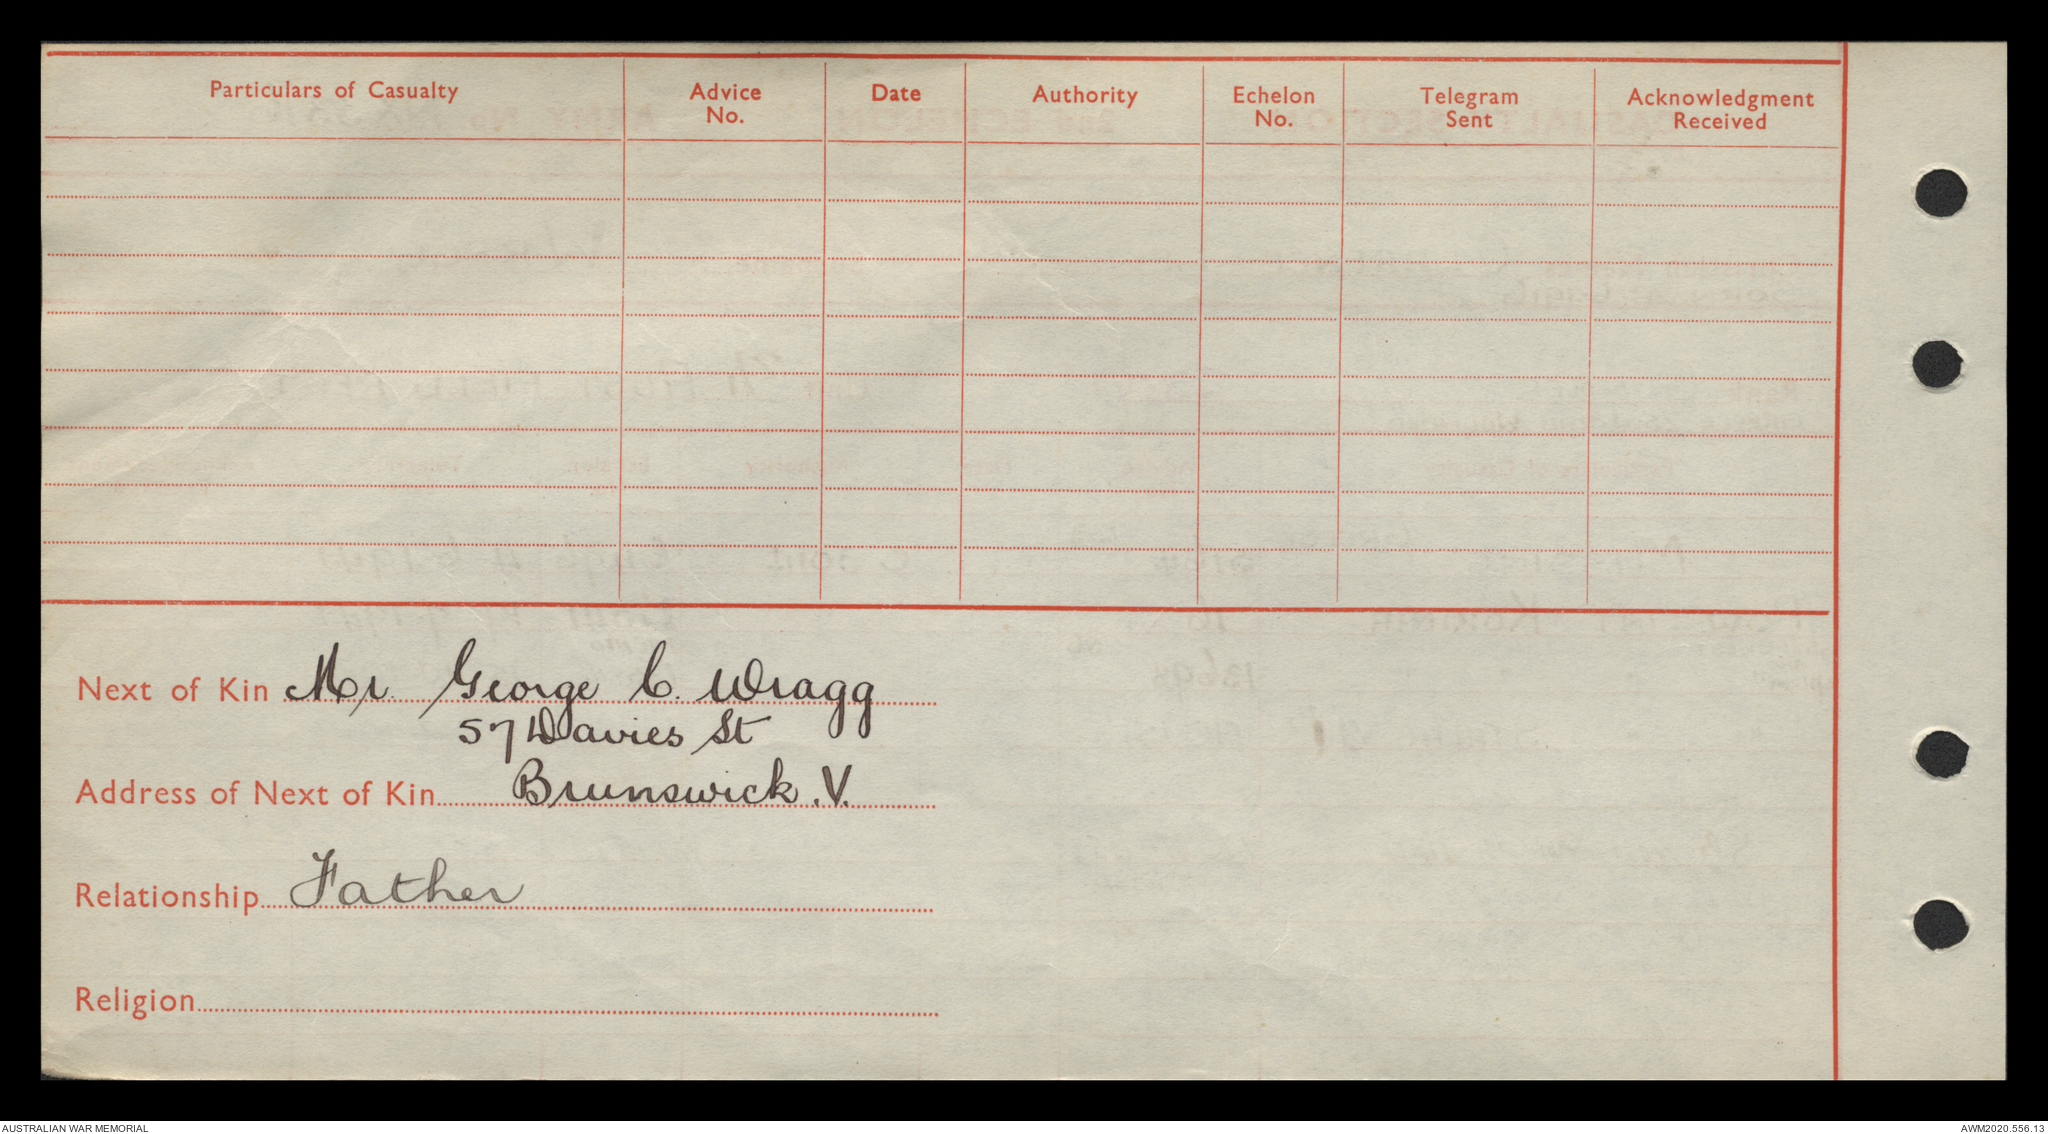 Particulars of Casualty
Advice No.
Date
Authority
Echelon No.
Telegram Sent
Acknowledgment Received
Next of Kin Mr. George C. Wragg
57 Davies St
Address of Next of Kin Brunswick. V.
Relationship Father
Religion
AUSTRALIAN WAR MEMORIAL
AWM2020.556.13